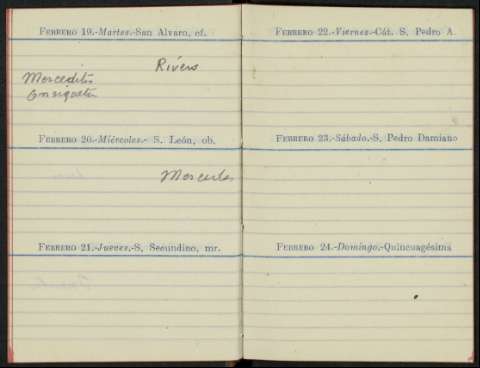 FEBRERO 19.-Martes.-San Alvaro, cf.
Rivero
Merceditas
Enriqueta
FEBRERO 20.-Miércoles.- S. León, ob.
Mercedes
FEBRERO 21.-Jueves.-S. Secundino, mr.
FEBRERO 22.-Viernes.-Cát. S. Pedro A.
FEBRERO 23.-Sábado.-S. Pedro Damiano
FEBRERO 24.-Domingo.-Quincuagésima